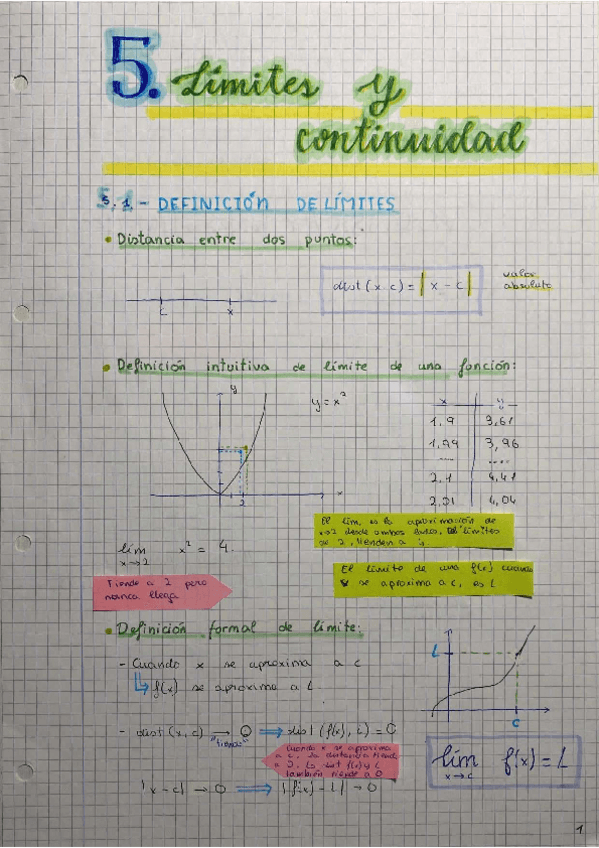 5. Límites y
continuidad
5.1- DEFINICIÓN DE LÍMITES
• Distancia entre dos puntos:
c x
dist (x c) = | x - c |
valor
absoluto
• Definición intuitiva de límite de una función:
y
y = x²
2
x
x y
1,9 3,61
1,99 3,96
.... ....
2,1 4,41
2,01 4,04
El lím. es la aproximación de
x→2 desde ambos lados,
se 2, tienden a 4.
lím x² = 4.
x→2
Tiende a 2 pero
nunca llega
El límite de una f(x) cuando
x se aproxima a c, es L.
• Definición formal de límite:
- Cuando x se aproxima a c
f(x) se aproxima a L.
L
c
- dist (x, c) → 0 ⟹ dist (f(x), L) = 0
"tiende"
Cuando x se aproxima
a c, la distancia tiende
a 0, la dist f(x) y L
también tiende a 0
|x - c| → 0 ⟹ |f(x) - L| → 0
lím f(x) = L
x→c
1